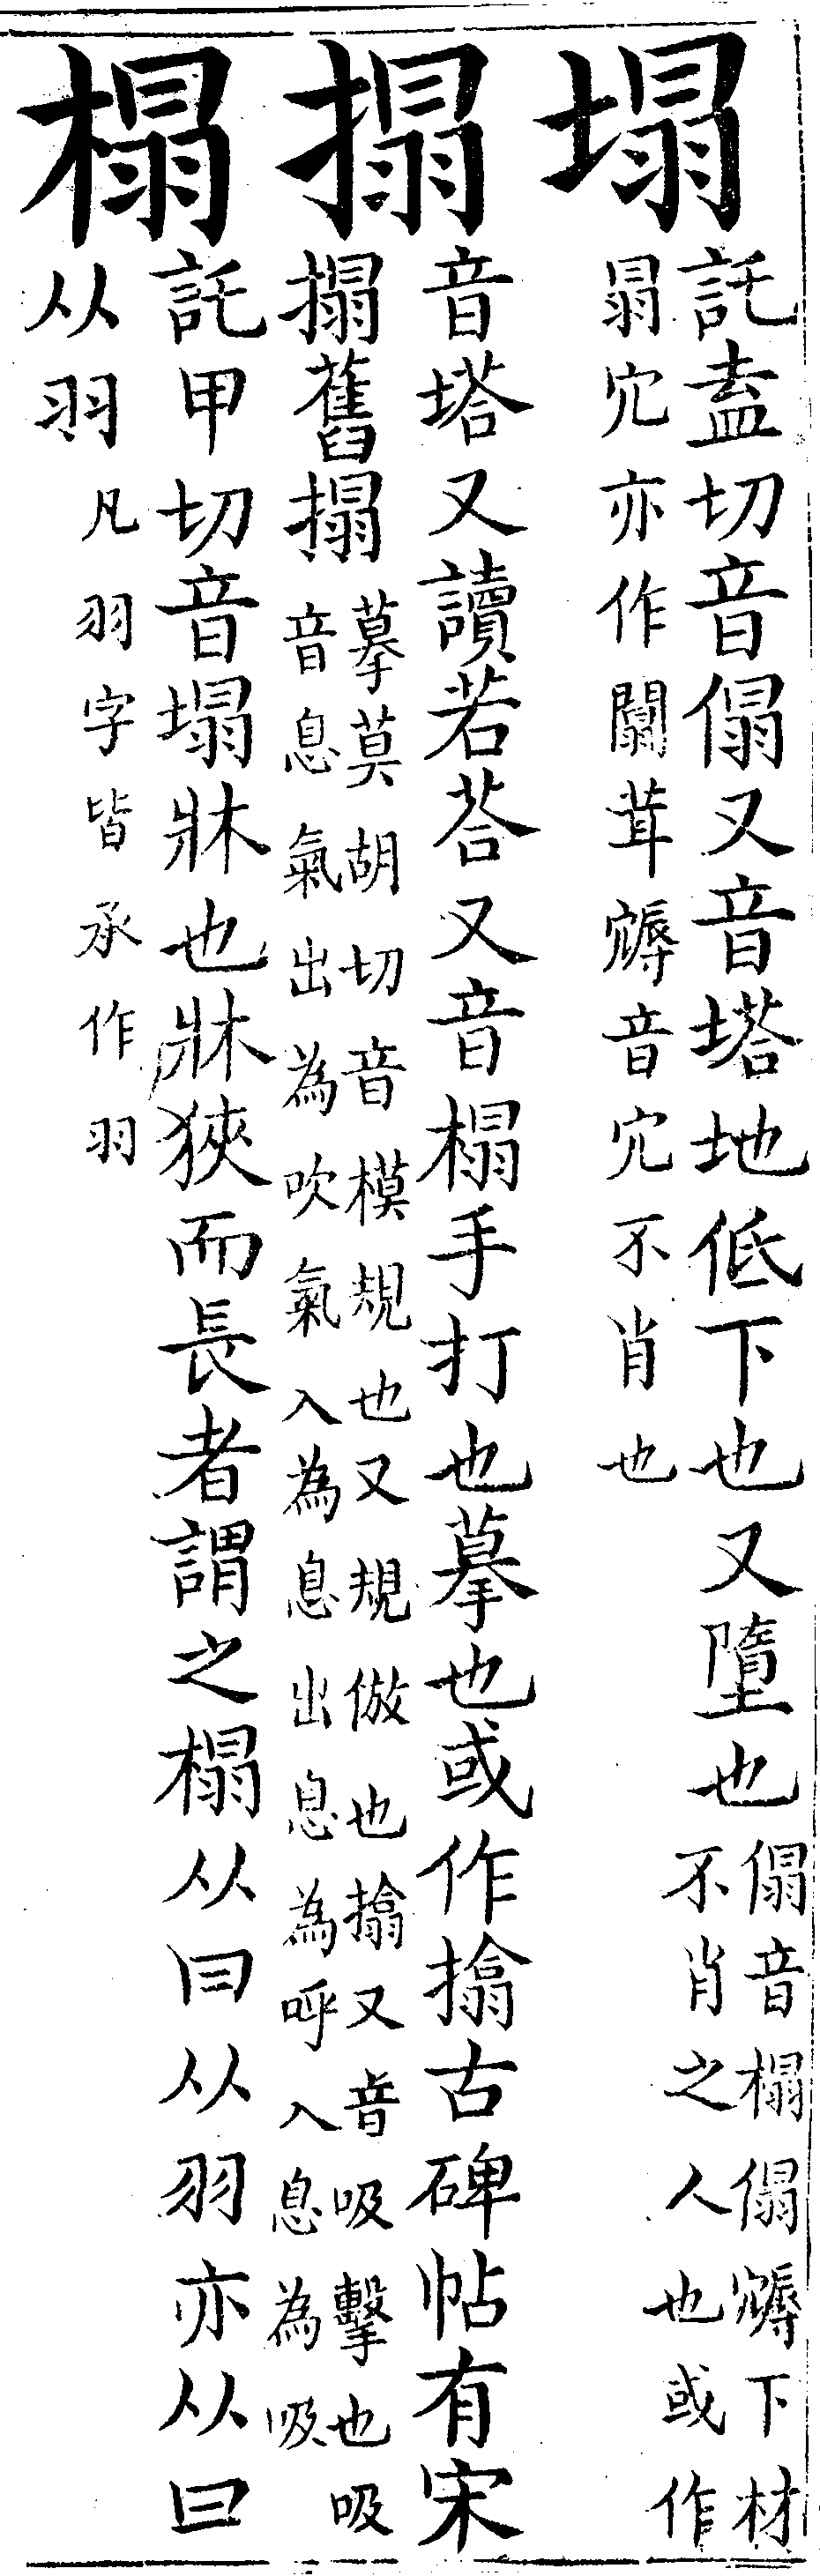 塌
託盍切音傝又音塔地低下也又墮也
傝音榻傝𡫦下材
不肖之人也或作
𦐇宂亦作闒茸𡫦音宂不肖也
搨
音塔又讀若荅又音榻手打也摹也或作㩉古碑帖有宋
搨舊搨
摹莫胡切音模規也又規倣也㩉又音吸擊也吸
音息氣出為吹氣入為息出息為呼入息為吸
榻
託甲切音塌牀也牀狹而長者謂之榻从冃从羽亦从曰
从羽
凡羽字皆承作羽